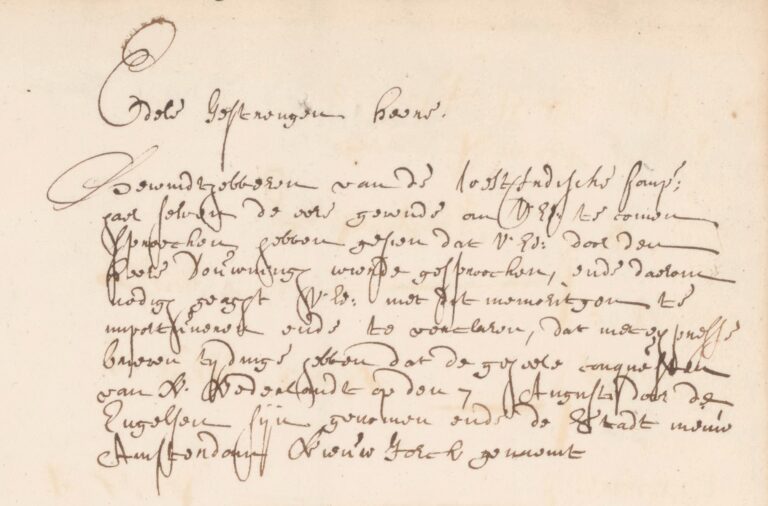 Edele Gestrengen heere.
Bewindthebberen van de Westindische Comp:
haer selven de eere gevende om UEd: te comen
spreecken hebben gesien dat U Ed: door den
heere wierde gesproocken, ende daerom
nodigh geacht U Ed: met dit memoritgen te
importuneren ende te verclaren, dat met expresse
brieven tydinge hebben dat de geheele conquesten
van N. Nederlandt op den 7 Augusti door de
Engelsen sijn genomen ende de Stadt nieuw
Amsterdam Nieuw Jorck genaemt